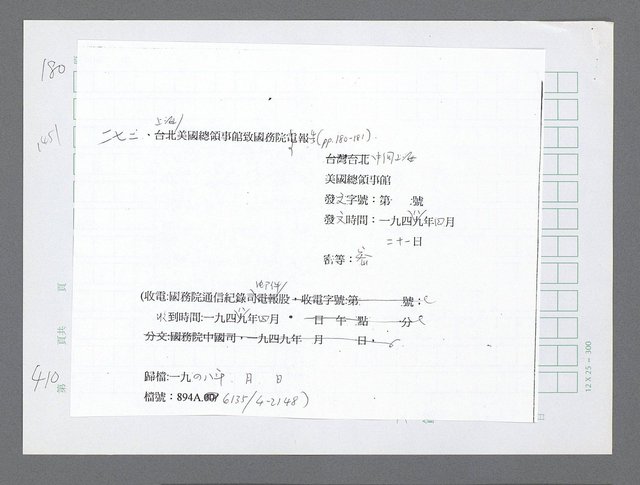 180
145
410
上海
二七二、台北美國總領事館致國務院電報(pp.180-181).
台灣台北 中國上海
美國總領事館
發文字號：第 號
發文時間：一九四九年四月
二十一日
密等：密
(收電:國務院通信紀錄司電報股，收電字號:第 號：
收到時間:一九四九年四月 日 午 點 分
分文:國務院中國司，一九四九年 月 日，
歸檔:一九四八年 月 日
檔號：894A.00/6135/4-2148)
頁
頁共
第
12 X 25 = 300